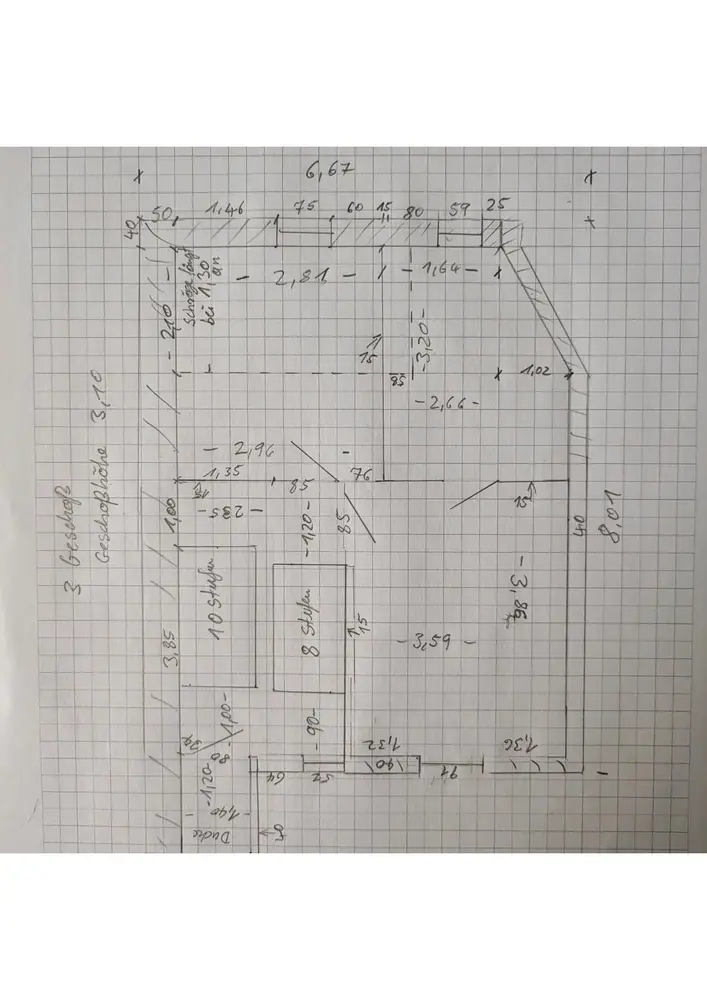 6,67
50 1,46 75 60 15 80 59 25
40
Schräge fängt
bei 1,30
an
- 2,81 -
- 1,64 -
- 2,10 -
15
- 3,20 -
85
1,02
- 2,66 -
3 Geschoß
Geschoßhöhe 3,10
- 2,96 -
1,35
85
76
15
15
1,00
- 235 -
- 1,20 -
85
40
8,01
10 Stufen
8 Stufen
15
- 3,86 -
- 3,59 -
3,85
- 1,00 -
- 90 -
80
1,32
1,36
40
64
52
91
- 1,20 -
- 1,40 -